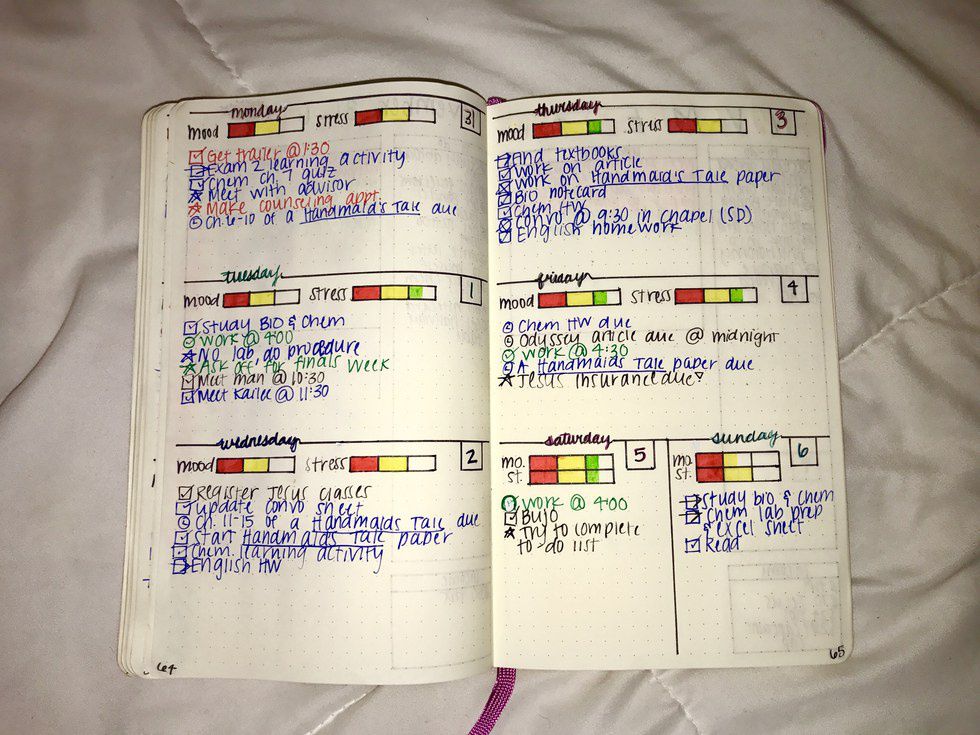 monday
mood stress 31
Get trailer @ 1:30
Exam 2 learning activity
Chem Ch. 7 quiz
Meet with advisor
Make counseling appt.
Ch. 6-10 of a Handmaid's Tale due
tuesday
mood stress 1
Study BIO & Chem
Work @ 4:00
No lab, do procedure
Ask off for finals week
Meet man @ 10:30
Meet Karlee @ 11:30
wednesday
mood stress 2
Register Jesus classes
Update convo sheet
Ch. 11-15 of a Handmaids Tale due
Start Handmaids Tale paper
Chem. learning activity
English HW
64
thursday
mood stress 3
Find textbooks
Work on article
Work on Handmaid's Tale paper
Bio notecard
Chem HW
Convo @ 9:30 in chapel (SD)
English homework
friday
mood stress 4
Chem HW due
Odyssey article due @ midnight
Work @ 4:30
A Handmaids Tale paper due
Jesus insurance due?
saturday
mo. 5
st.
Work @ 4:00
BUJO
Try to complete
to-do list
sunday
mo. 6
st.
Study bio & chem
Chem lab prep
& excel sheet
Read
65